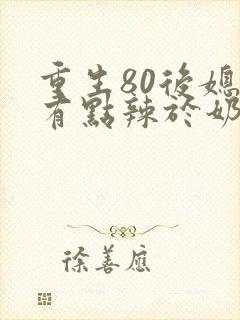 重生80後媳
有點辣於奶
徐善應